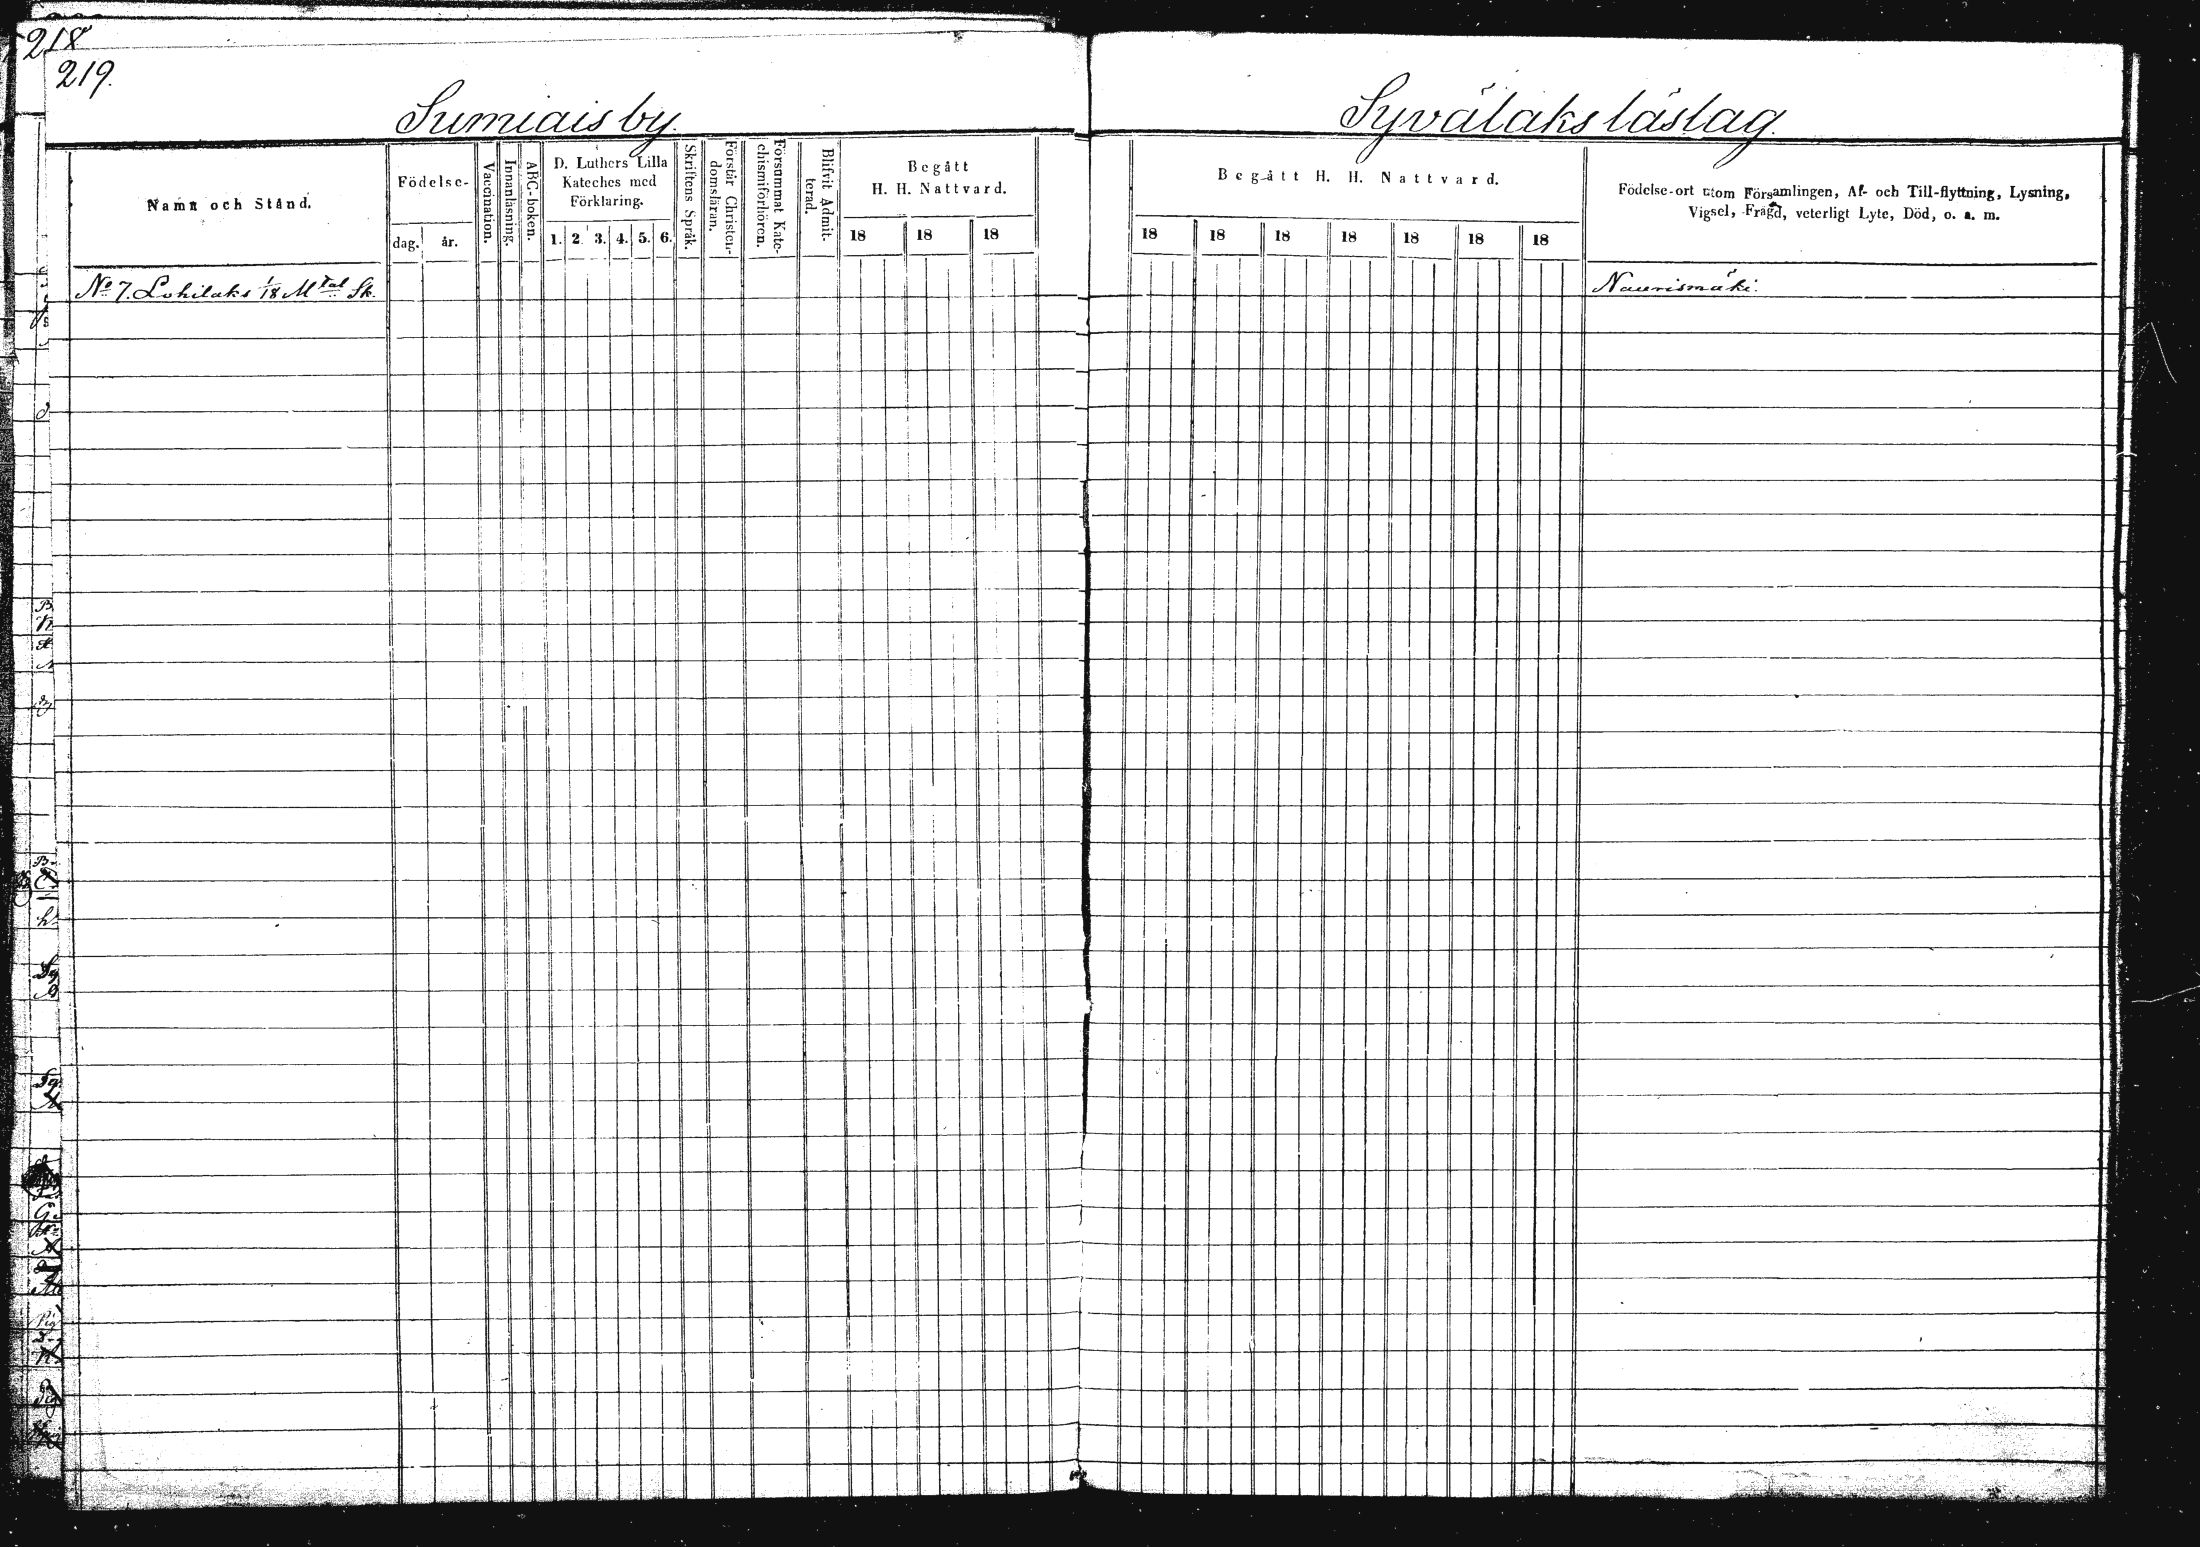 218
219.
Sumiais by.
Namn och Stånd.
Födelse-
dag. år.
Vaccination.
Innanläsning.
ABC-boken.
D. Luthers Lilla
Kateches med
Förklaring.
1. 2. 3. 4. 5. 6.
Skriftens Språk.
Förstår Christen-
domsläran.
Försummat Kate-
chismiförhören.
Blifvit Admit-
terad.
Begått
H. H. Nattvard.
18 18 18
No 7. Lohilaks 1/18 Mtal Sk.
Syvälaks läslag.
Begått H. H. Nattvard.
18 18 18 18 18 18 18
Födelse-ort utom Församlingen, Af- och Till-flyttning, Lysning,
Vigsel, Frägd, veterligt Lyte, Död, o. a. m.
Naurismäki.